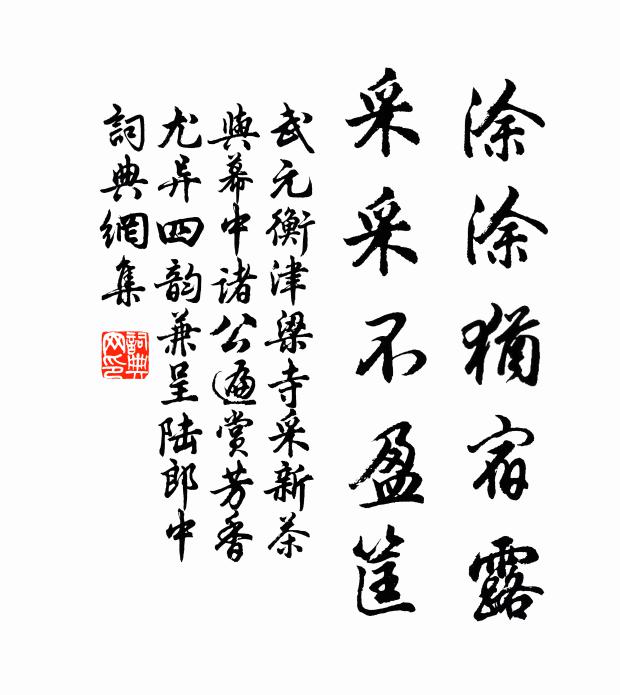 涂涂猶宿露
采采不盈筐
武元衡津梁寺采新茶
與幕中諸公遍賞芳香
尤异四韵兼呈陆郎中
詞典網集
詞典
文印